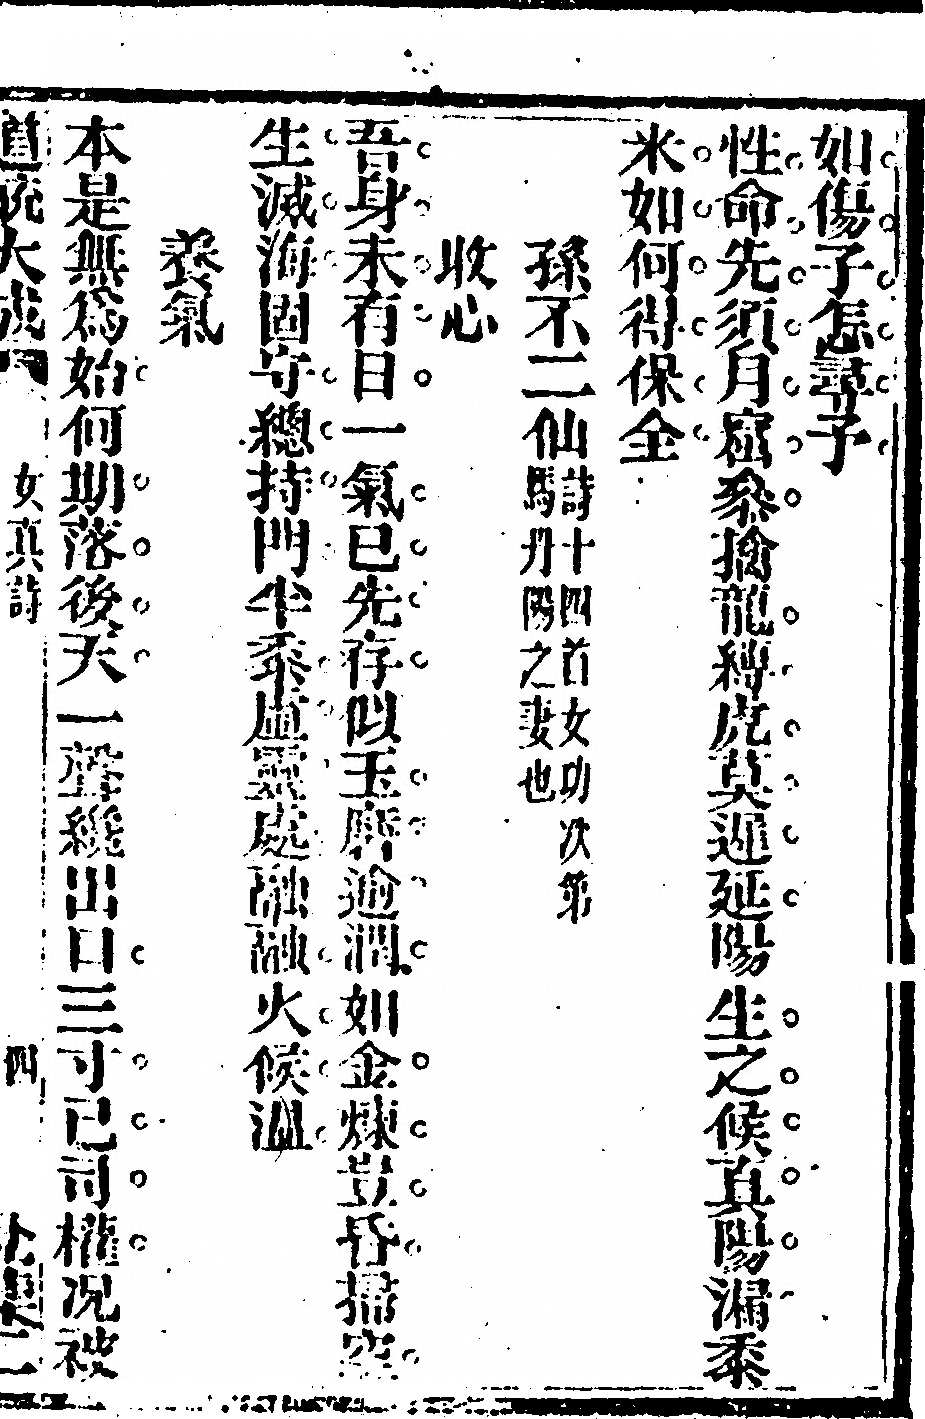 如傷子怎尋子
性命先須月窟叅擒龍縛虎莫遲延陽生之候真陽漏黍
米如何得保全
孫不二仙詩十四首女功次第
馬丹陽之妻也
收心
吾身未有日一氣已先存似玉磨逾潤如金煉豈昏掃空
生滅海固守總持門半黍虛靈處融融火候溫
養氣
本是無為始何期落後天一聲纔出口三寸已司權況被
道統大成 女真詩 四